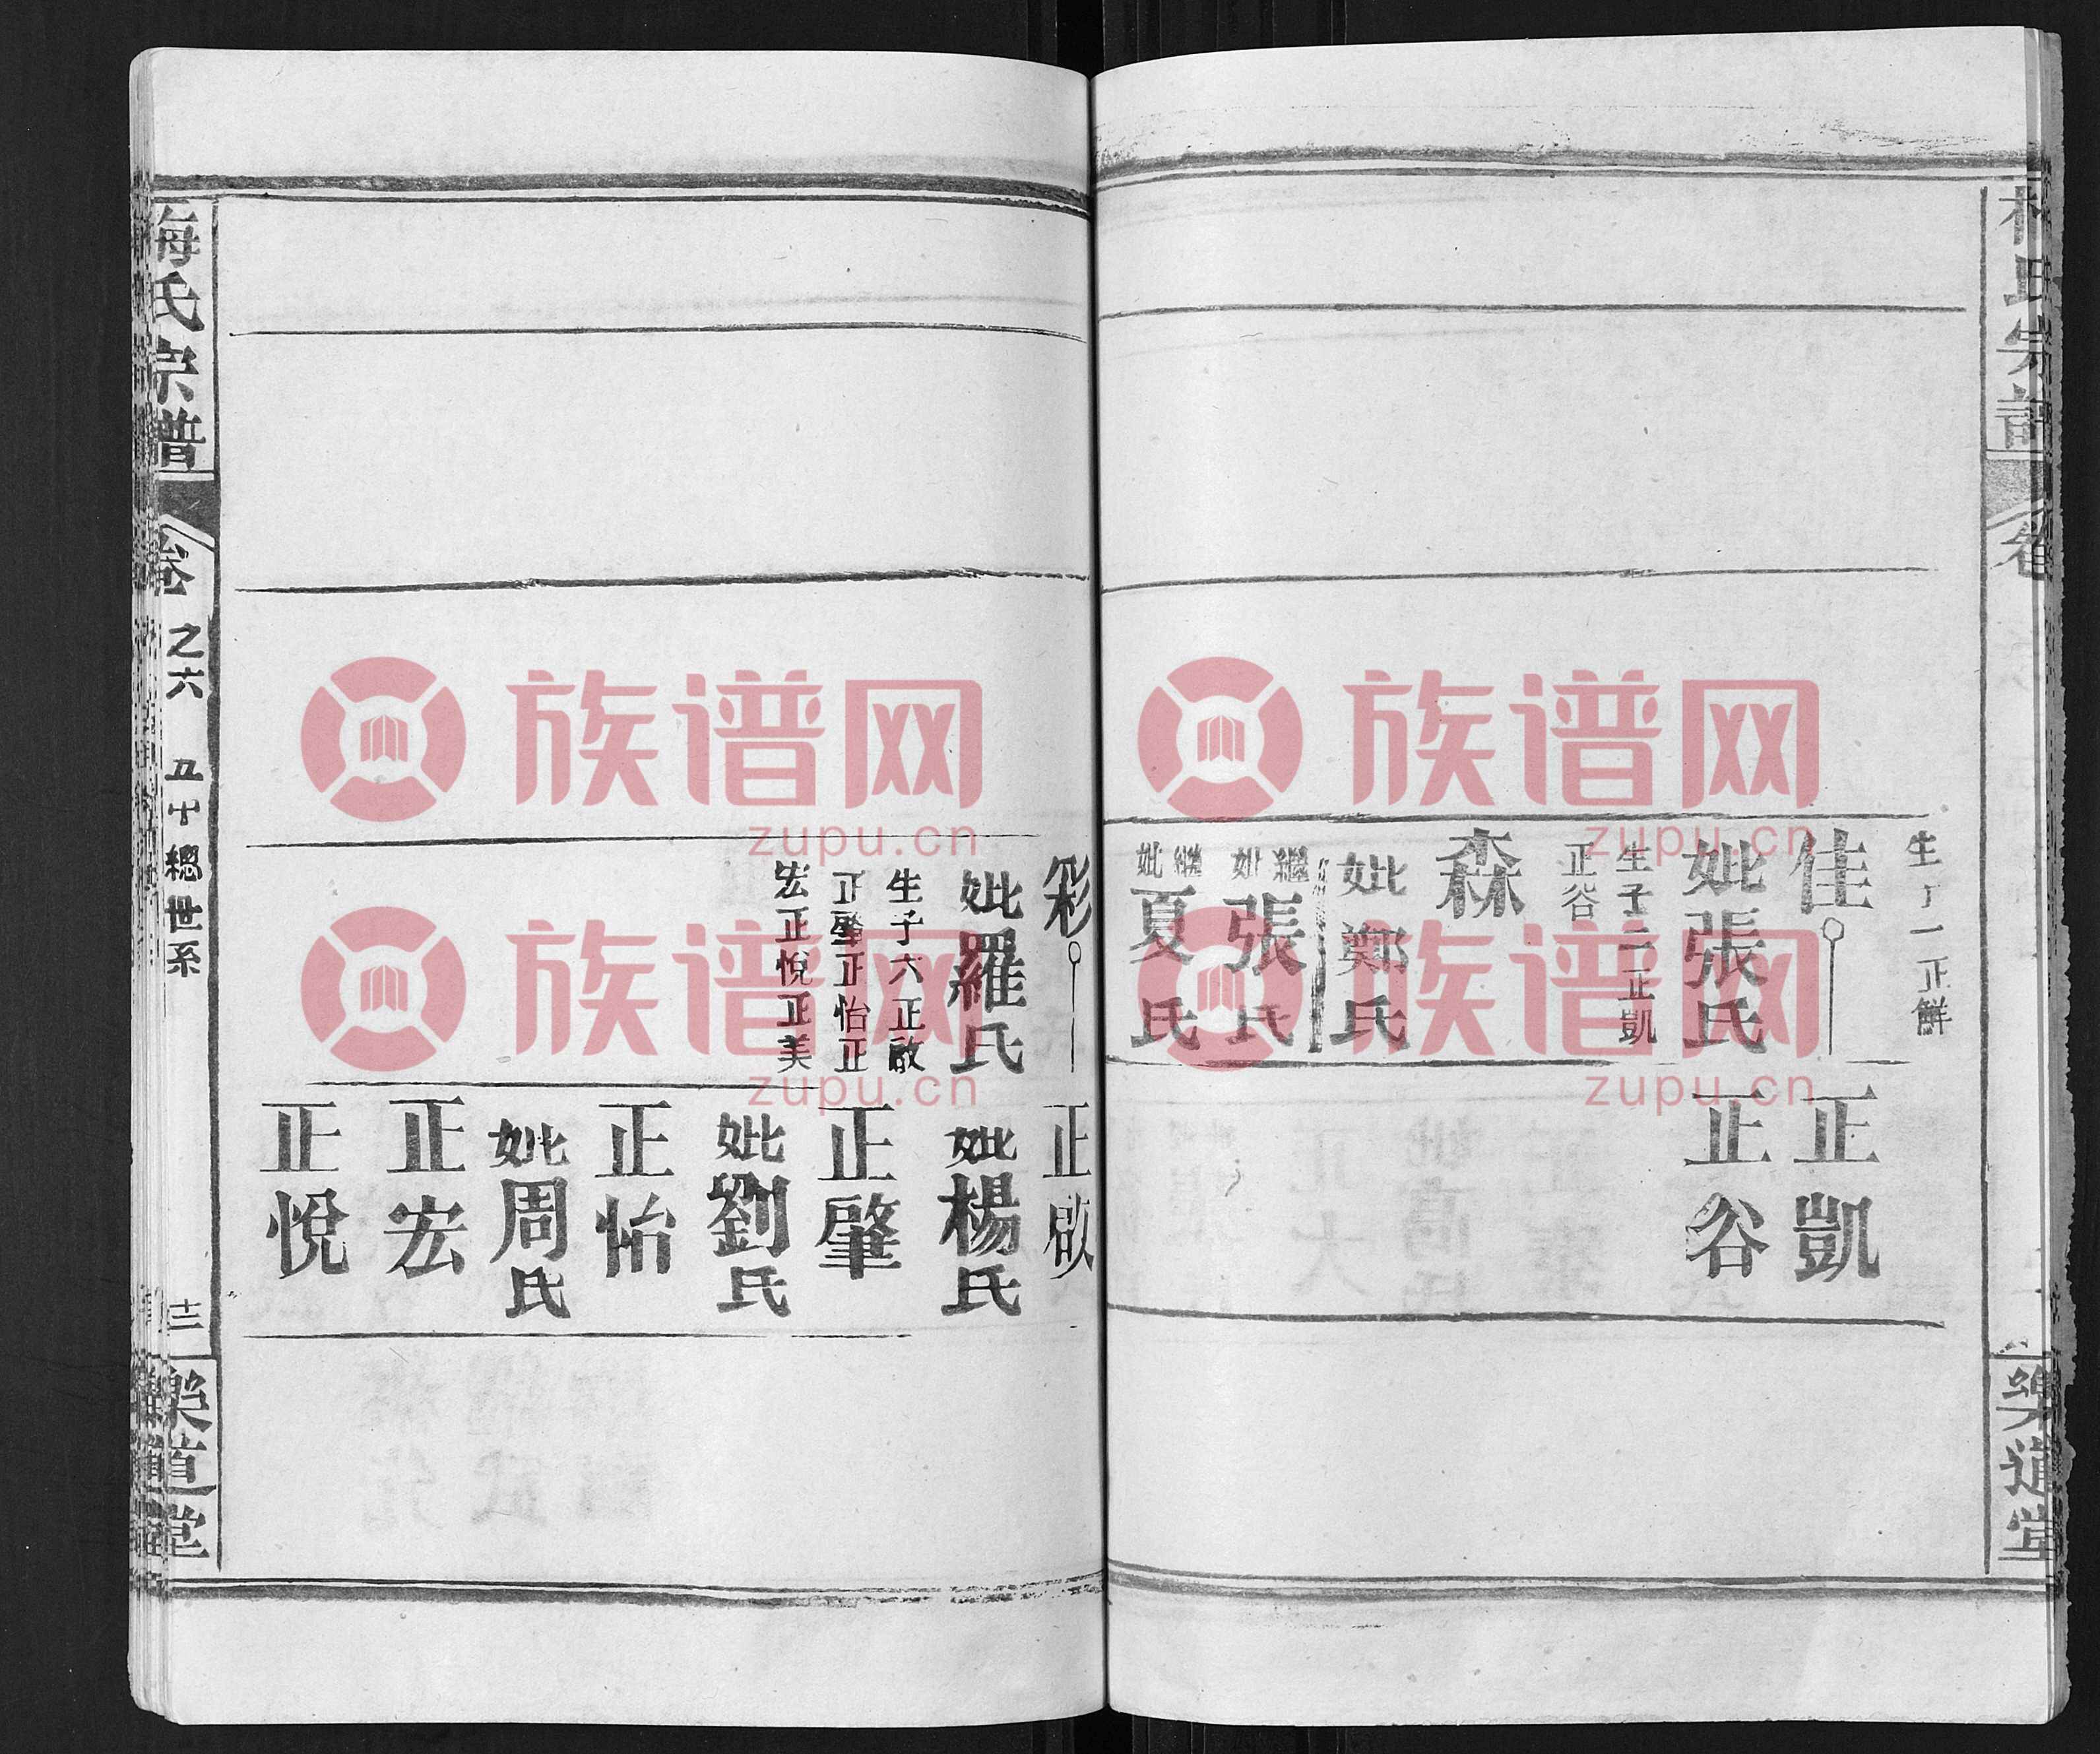 生子一正鮮
佳
妣張氏
生子二正凱
正谷
森
妣鄭氏
繼妣張氏
繼妣夏氏
正凱
正谷
彩
妣羅氏
生子六正啟
正肇正怡正
宏正悅正美
正啟
妣楊氏
正肇
妣劉氏
正怡
妣周氏
正宏
正悅
梅氏宗譜
卷之六
五十總世系
十三
樂道堂
氏宗譜
卷
樂道堂
族谱网
zupu.cn
族谱网
zupu.cn
族谱网
zupu.cn
族谱网
zupu.cn